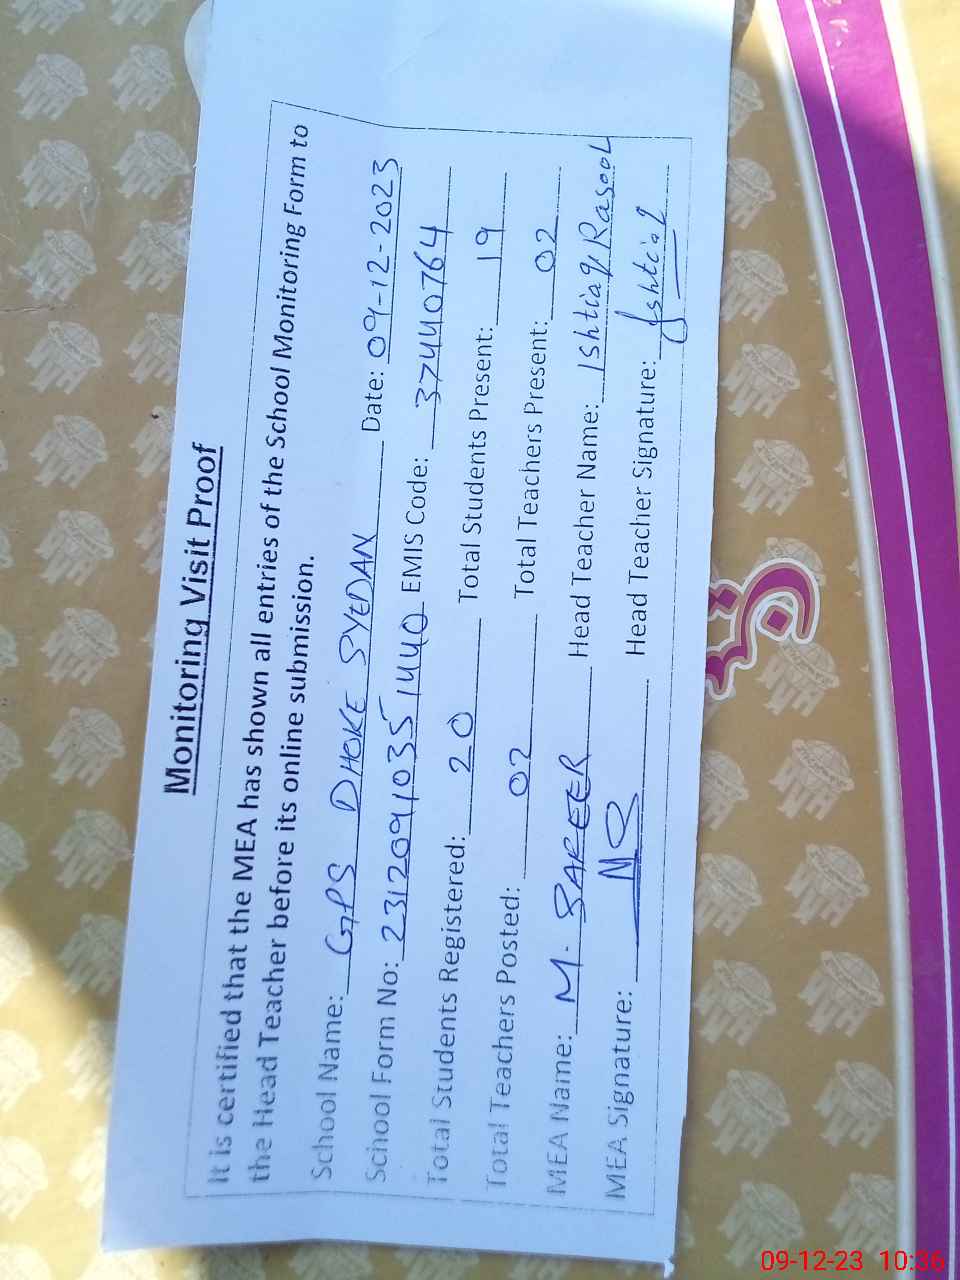 Monitoring Visit Proof
It is certified that the MEA has shown all entries of the School Monitoring Form to
the Head Teacher before its online submission.
School Name: GPS DHOKE SYEDAN Date: 09-12-2023
School Form No: 23120910351440 EMIS Code: 37440764
Total Students Registered: 20 Total Students Present: 19
Total Teachers Posted: 02 Total Teachers Present: 02
MEA Name: M. SAFEER Head Teacher Name: Ishtiaq Rasool
MEA Signature: Head Teacher Signature: Ishtiaq
09-12-23 10:36